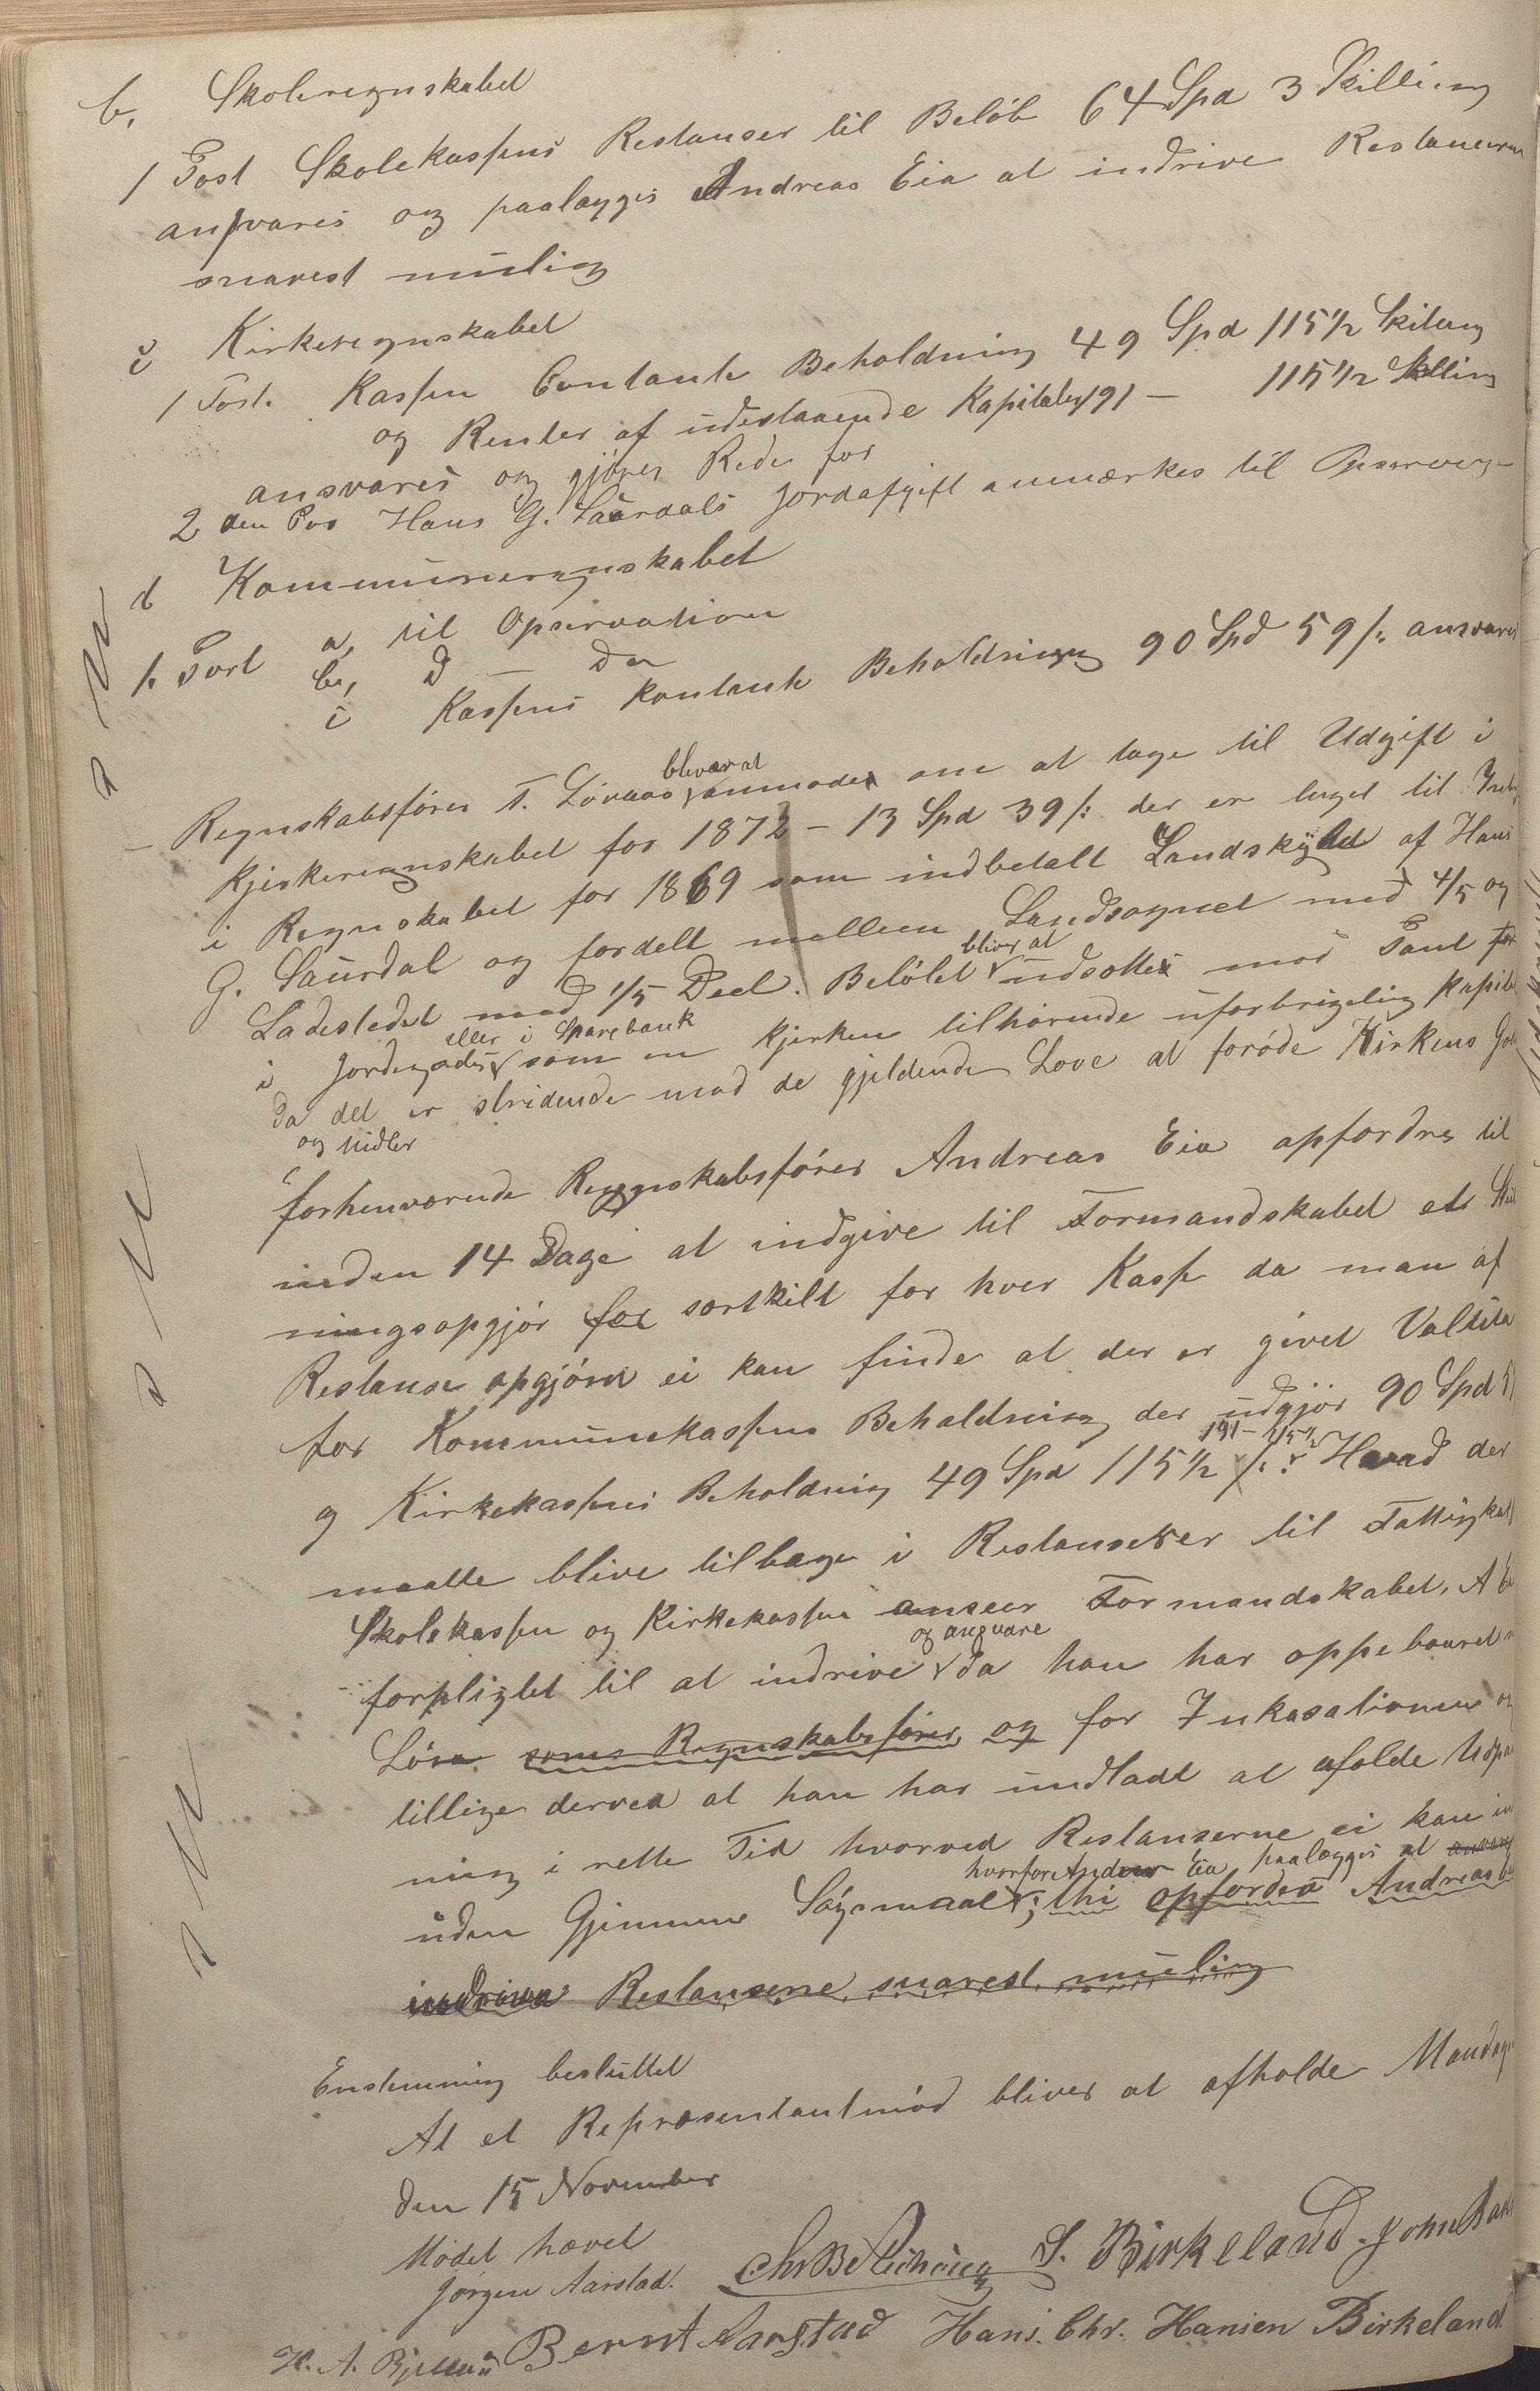 b, Skoleregnskabet
1 Post Skolekassens Restanser til Beløb 64 Spd 3 Skilling
ansvares og paalægges Andreas Eia at indrive Restancerne
snarest mulig
c Kirkeregnskabet
1 Post. Kassen Contante Beholdning 49 Spd 115 1/2 Skilling
og Renter af udestaaende Kapitaler 191 - 115 1/2 Skilling
ansvares og gjøres Rede for
2 den Pos Hans G. Saurdals Jordafgift anmærkes til Opserva
d Kommuneregnskabet
1. Post a, til Opservation
b, d – do
c Kassens kontante Beholdning 90 Spd 59 /: ansvares
– Regnskabsfører T. Løvaas bliver at anmode om at tage til Udgift i
Kjirkeregnskabet for 1872 – 13 Spd 39 /: der er taget til Indt
i Regnskabet for 1869 som indbetalt Landskyld af Hans
G. Saurdal og fordelt mellem Landsognet med 4/5 og
Ladestedet med 1/5 Deel. Beløbet bliver at udsætte mod Pant for
i Jordegods eller i Sparebank som en Kjerken tilhørende uforbrigelig Kapital
da det er stridende mod de gjeldende Love at forøde Kirkens God
og Midler
forhenværende Regnskabsfører Andreas Eia opfordres til
inden 14 Dage at indgive til Formandskabet et
ningsopgjør for særskilt for hver Kasse da man af
Restanseopgjøret ei kan finde at der er givet Valuta
for Kommunekassens Beholdning der udgjør 90 Spd 5
og Kirkekassens Beholdning 49 Spd 115 1/2 /: 191 – 115 1/2 Hvad der
maatte blive tilbage i Restanser til Fattigkas
Skolekassen og Kirkekassen anseer Formandskabet A. Ei
forpligtet til at indrive og ansvare da han har oppebaaret
Løn som Regnskabsfører og for Inkasationen og
tillige derved at han har undladt at afolde Udpa
ning i rette Tid hvorved Restanserne ei kan in
uden Gjennem Søgsmaal hvorfor Andreas Eia paalægges at ansvare ; thi opfordres Andreas
indrive Restanserne snarest mulig
Enstemmig besluttet
At et Repræsentantmød bliver at afholde Mandag
den 15 November
Mødet hævet
Jørgen Aarstad. S. Birkeland. John
H. A. Bernt Aarstad Hans. Chr. Hansen Birkeland